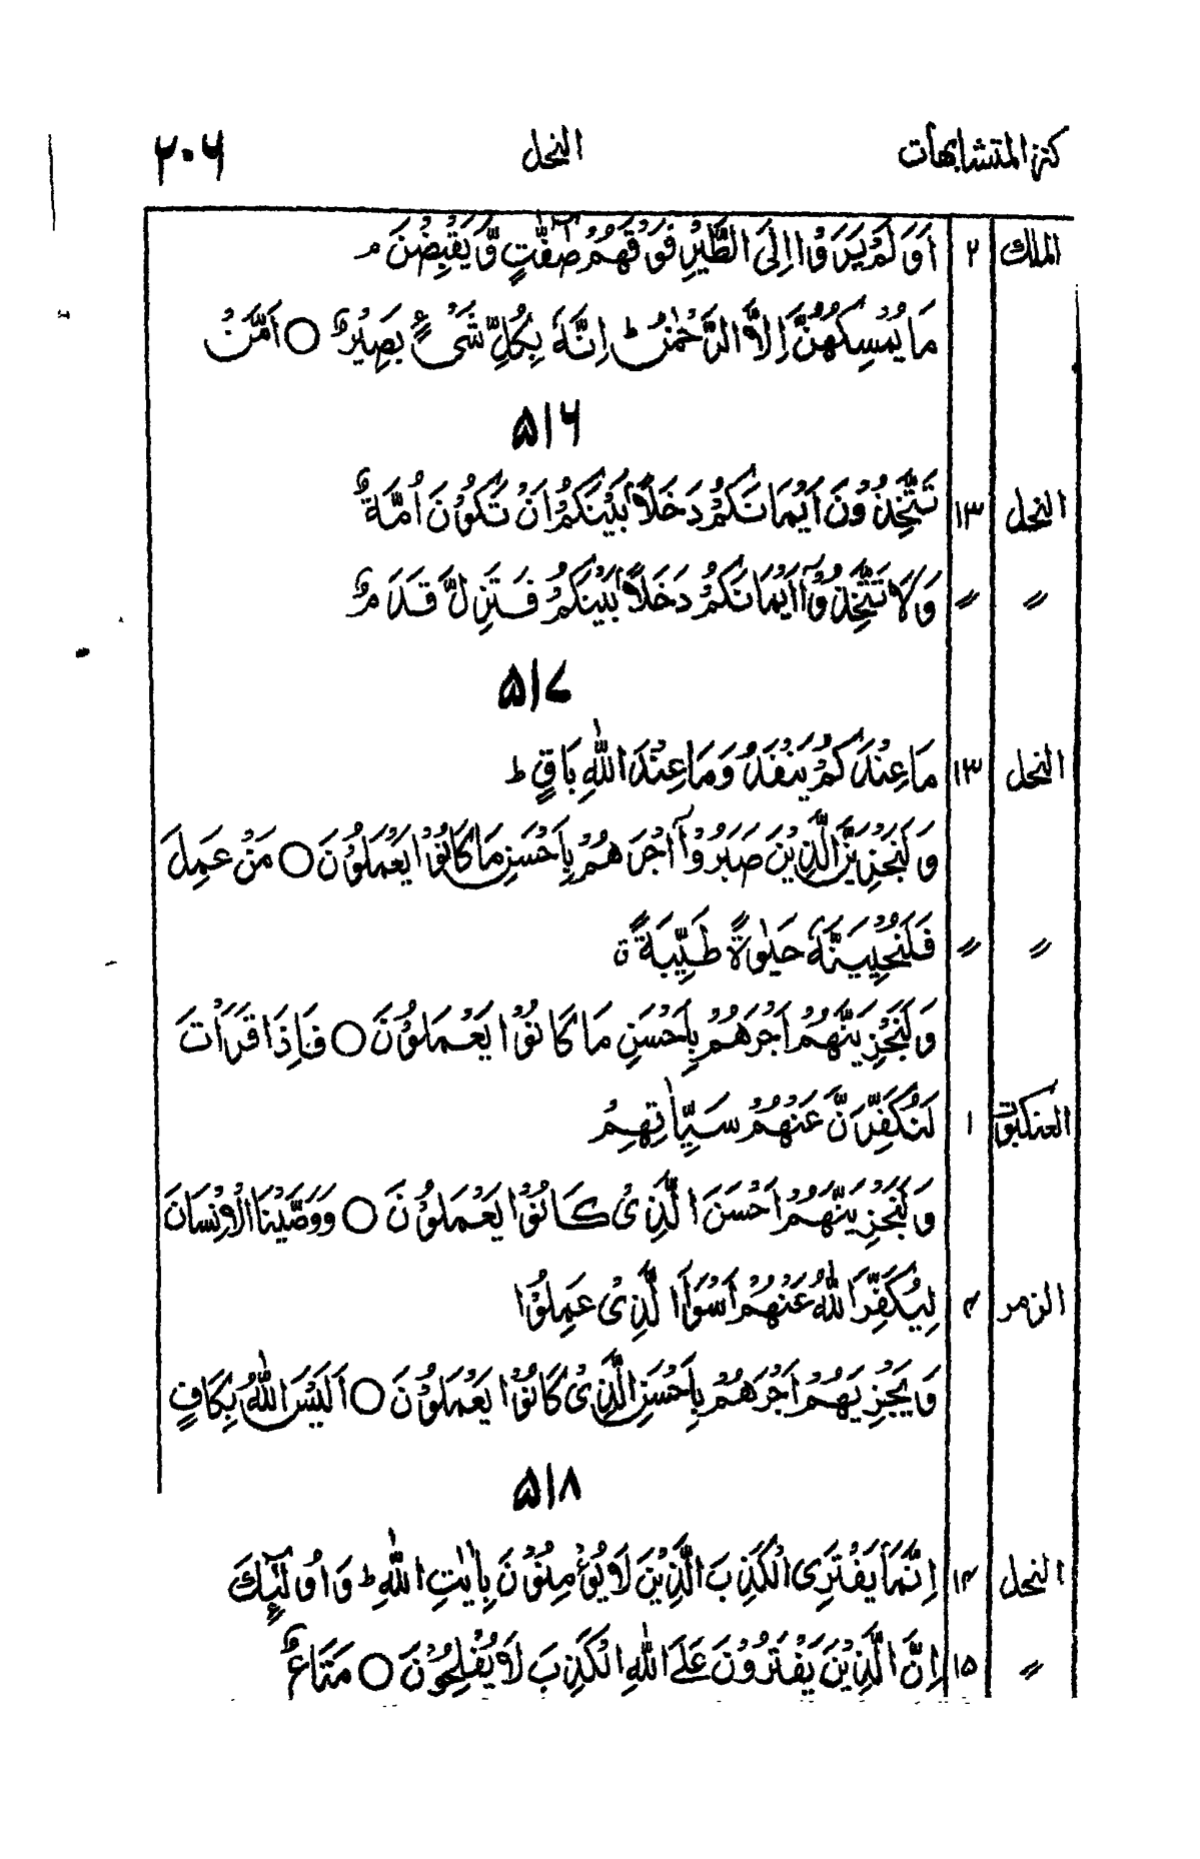 كنز المتشابهات النحل ٢٠٦
الملك ٢ اَوَلَمْ يَرَوْا اِلَى الطَّيْرِ فَوْقَهُمْ صٰٓفّٰتٍ وَّيَقْبِضْنَ م
مَا يُمْسِكُهُنَّ اِلَّا الرَّحْمٰنُ ط اِنَّهٗ بِكُلِّ شَیْءٍۭ بَصِيْرٌ ○ اَمَّنْ
٥١٦
النحل ١٣ تَتَّخِذُوْنَ اَيْمَانَكُمْ دَخَلًاۢ بَيْنَكُمْ اَنْ تَكُوْنَ اُمَّةٌ
〃 〃 وَلَا تَتَّخِذُوْٓا اَيْمَانَكُمْ دَخَلًاۢ بَيْنَكُمْ فَتَزِلَّ قَدَمٌۢ
٥١٧
النحل ١٣ مَا عِنْدَكُمْ يَنْفَدُ وَمَا عِنْدَ اللّٰهِ بَاقٍ ط
وَلَنَجْزِيَنَّ الَّذِيْنَ صَبَرُوْٓا اَجْرَهُمْ بِاَحْسَنِ مَا كَانُوْا يَعْمَلُوْنَ ○ مَنْ عَمِلَ
〃 〃 فَلَنُحْيِيَنَّهٗ حَيٰوةً طَيِّبَةً ۃ
وَلَنَجْزِيَنَّهُمْ اَجْرَهُمْ بِاَحْسَنِ مَا كَانُوْا يَعْمَلُوْنَ ○ فَاِذَا قَرَاْتَ
العنكبوت ١ لَنُكَفِّرَنَّ عَنْهُمْ سَيِّاٰتِهِمْ
وَلَنَجْزِيَنَّهُمْ اَحْسَنَ الَّذِیْ كَانُوْا يَعْمَلُوْنَ ○ وَوَصَّيْنَا الْاِنْسَانَ
الزمر ٤ لِيُكَفِّرَ اللّٰهُ عَنْهُمْ اَسْوَاَ الَّذِیْ عَمِلُوْا
وَيَجْزِيَهُمْ اَجْرَهُمْ بِاَحْسَنِ الَّذِیْ كَانُوْا يَعْمَلُوْنَ ○ اَلَيْسَ اللّٰهُ بِكَافٍ
٥١٨
النحل ١٤ اِنَّمَا يَفْتَرِی الْكَذِبَ الَّذِيْنَ لَا يُؤْمِنُوْنَ بِاٰيٰتِ اللّٰهِ ط وَاُولٰٓئِكَ
〃 ١٥ اِنَّ الَّذِيْنَ يَفْتَرُوْنَ عَلَی اللّٰهِ الْكَذِبَ لَا يُفْلِحُوْنَ ○ مَتَاعٌ